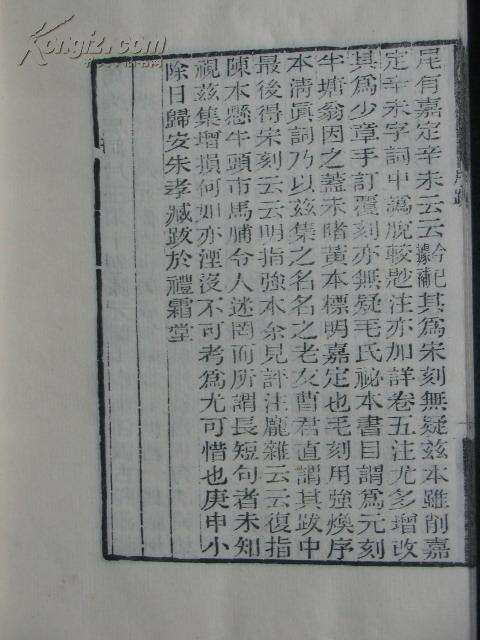 尾有嘉定辛未云云據補鈐記其為宋刻無疑茲本雖削嘉
定辛未字詞中譌脫較尠注亦加詳卷五注尤多增改
其為少章手訂覆刻亦無疑毛氏祕本書目謂為元刻
半塘翁因之蓋未睹黃本標明嘉定也毛刻用強煥序
本清眞詞乃以茲集之名名之老友曹君直謂其跋中
最後得宋刻云云明指強本余見評注龐雜云云復指
陳本懸牛頭市馬脯令人迷罔而所謂長短句者未知
視茲集增損何如亦湮沒不可考為尤可惜也庚申小
除日歸安朱孝臧跋於禮霜堂
Kongfz.com